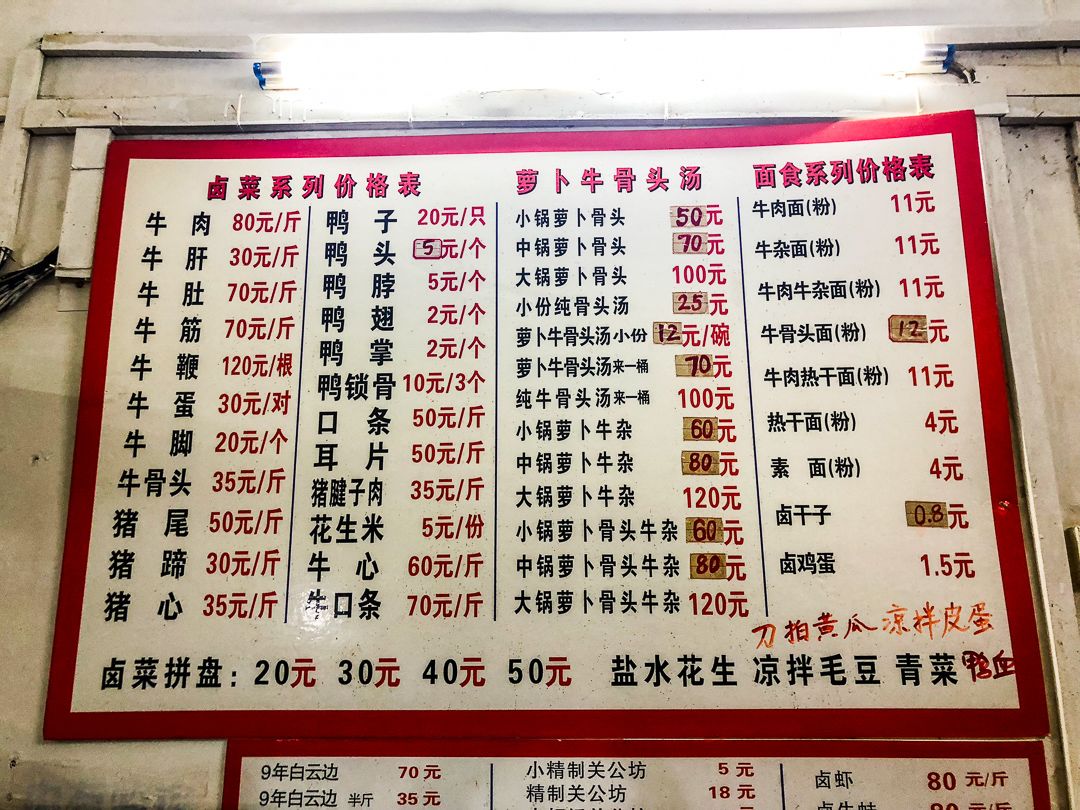 卤菜系列价格表
牛肉 80元/斤
牛肝 30元/斤
牛肚 70元/斤
牛筋 70元/斤
牛鞭 120元/根
牛蛋 30元/对
牛脚 20元/个
牛骨头 35元/斤
猪尾 50元/斤
猪蹄 30元/斤
猪心 35元/斤
鸭子 20元/只
鸭头 5元/个
鸭脖 5元/个
鸭翅 2元/个
鸭掌 2元/个
鸭锁骨 10元/3个
口条 50元/斤
耳片 50元/斤
猪腱子肉 35元/斤
花生米 5元/份
牛心 60元/斤
牛口条 70元/斤
萝卜牛骨头汤
小锅萝卜骨头 50元
中锅萝卜骨头 70元
大锅萝卜骨头 100元
小份纯骨头汤 25元
萝卜牛骨头汤小份 12元/碗
萝卜牛骨头汤来一桶 70元
纯牛骨头汤来一桶 100元
小锅萝卜牛杂 60元
中锅萝卜牛杂 80元
大锅萝卜牛杂 120元
小锅萝卜骨头牛杂 60元
中锅萝卜骨头牛杂 80元
大锅萝卜骨头牛杂 120元
面食系列价格表
牛肉面(粉) 11元
牛杂面(粉) 11元
牛肉牛杂面(粉) 11元
牛骨头面(粉) 12元
牛肉热干面(粉) 11元
热干面(粉) 4元
素面(粉) 4元
卤干子 0.8元
卤鸡蛋 1.5元
刀拍黄瓜 凉拌皮蛋
卤菜拼盘：20元 30元 40元 50元 盐水花生 凉拌毛豆 青菜 鸭血
9年白云边 70元
9年白云边 半斤 35元
小精制关公坊 5元
精制关公坊 18元
卤虾 80元/斤